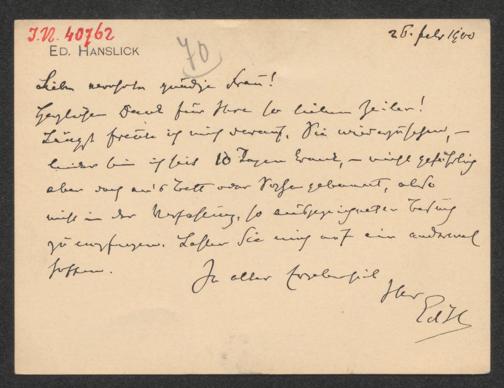 I.N. 40762
70
ED. HANSLICK
26. Febr 1900
Liebe verehrte gnädige Frau!
Herzlichen Dank für Ihre so lieben Zeilen!
Längst freute ich mich darauf, Sie wiederzusehen, –
leider bin ich seit 10 Tagen krank, – nicht gefährlich
aber doch an's Bett oder Sofa gebannt, also
nicht in der Verfassung, so ausgezeichneten Besuch
zu empfangen. Lassen Sie mich auf ein andermal
hoffen.
In alter Ergebenheit
Ihr
EdH